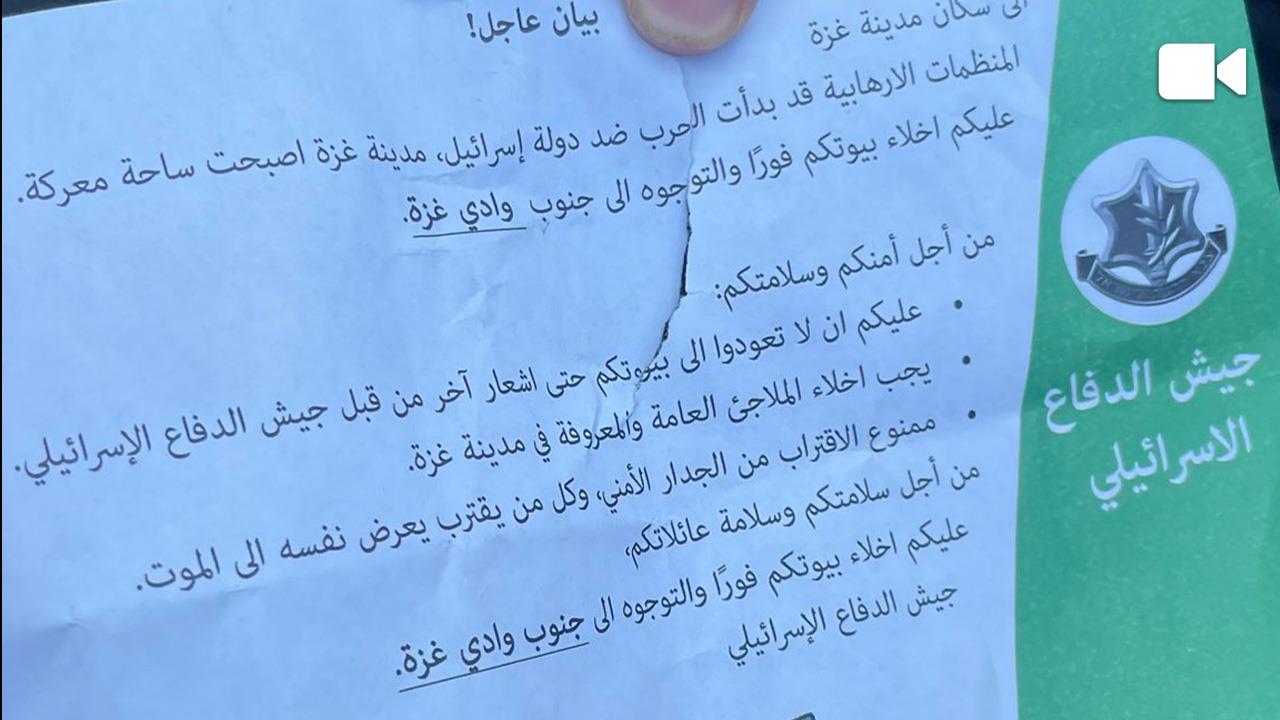 بيان عاجل!
الى سكان مدينة غزة
المنظمات الارهابية قد بدأت الحرب ضد دولة إسرائيل، مدينة غزة اصبحت ساحة معركة.
عليكم اخلاء بيوتكم فورًا والتوجوه الى جنوب وادي غزة.
من أجل أمنكم وسلامتكم:
• عليكم ان لا تعودوا الى بيوتكم حتى اشعار آخر من قبل جيش الدفاع الإسرائيلي.
• يجب اخلاء الملاجئ العامة والمعروفة في مدينة غزة.
• ممنوع الاقتراب من الجدار الأمني، وكل من يقترب يعرض نفسه الى الموت.
من أجل سلامتكم وسلامة عائلاتكم،
عليكم اخلاء بيوتكم فورًا والتوجوه الى جنوب وادي غزة.
جيش الدفاع الإسرائيلي
جيش الدفاع
الاسرائيلي